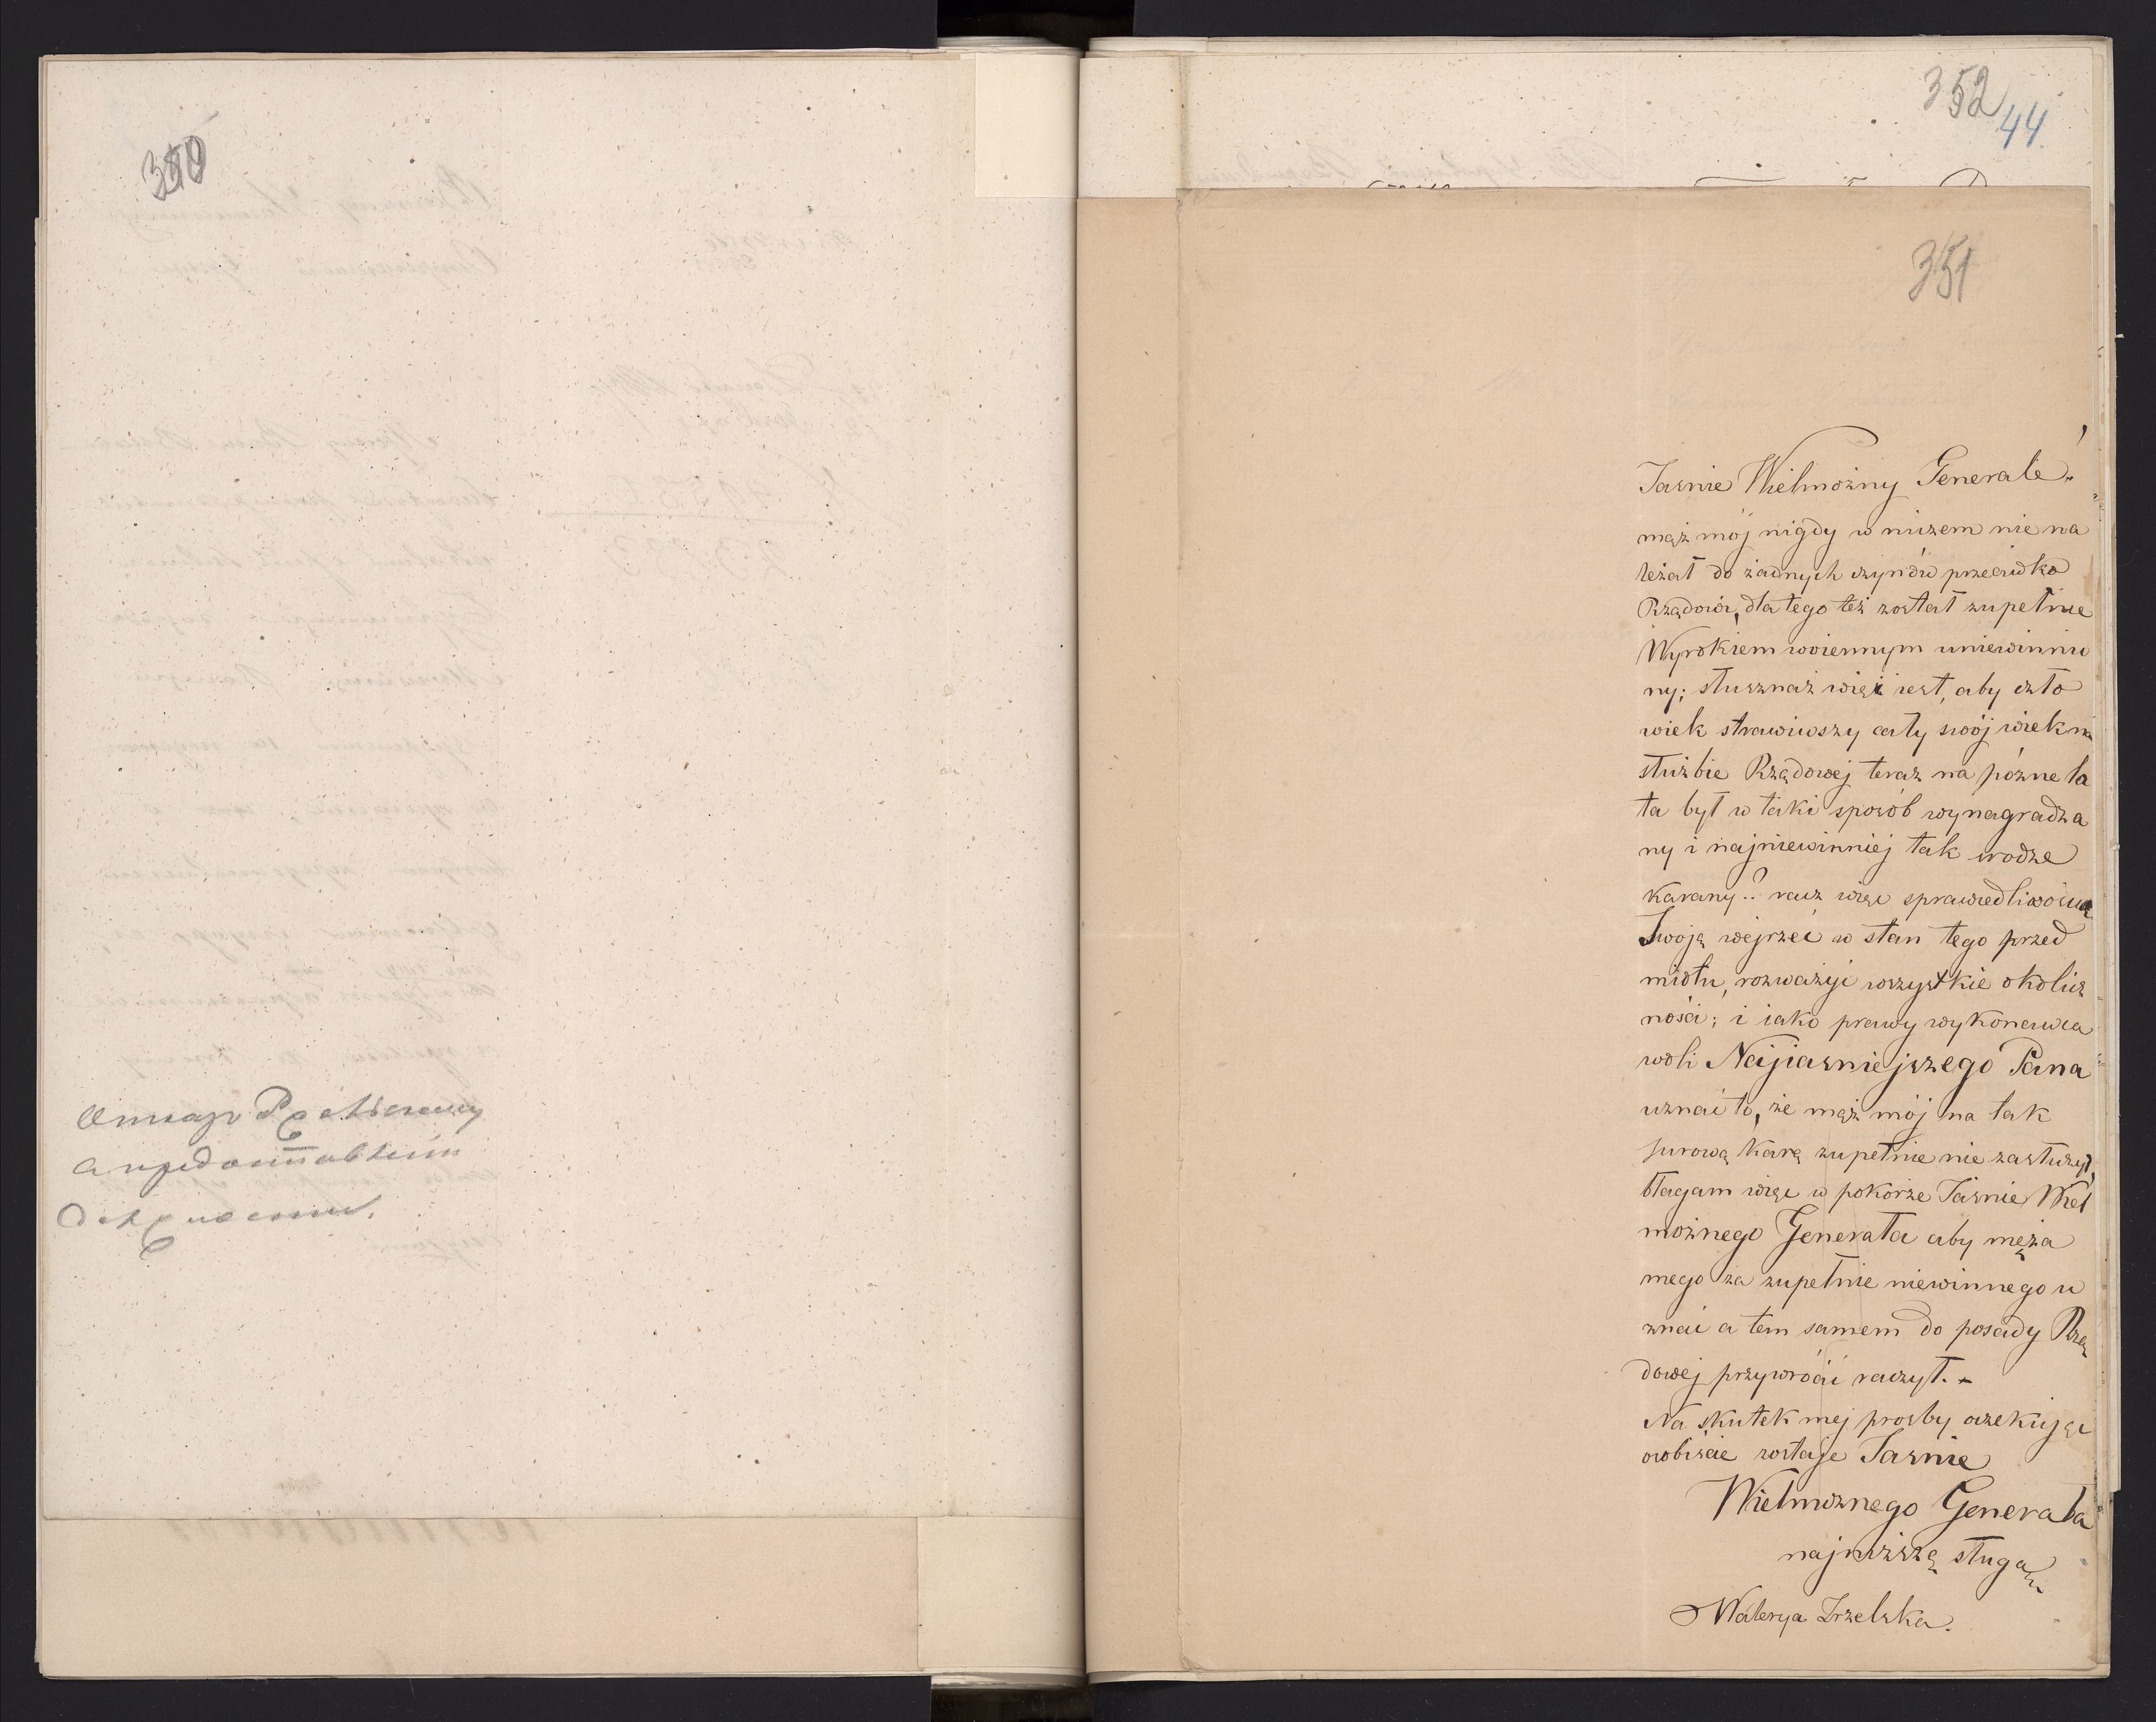 350
352
44
351
Jaśnie Wielmożny Generale!
mąż mój nigdy w niczem nie na
leżał do żadnych czynów przeciwko
Rządowi, dla tego też został zupełnie
Wyrokiem woiennym uniewinnio
ny; słusznaż więc iest, aby czło
wiek strawiwszy cały swój wiek na
służbie Rządowej teraz na późne la
ta był w taki sposób wynagradza
ny i najniewinniej tak srodze
karany..? racz więc sprawiedliwością
Swoją wejrzeć w stan tego przed
miotu, rozważyć wszystkie okolicz
ności; i iako prawy wykonawca
woli Najiaśniejszego Pana
uznać to, że mąż mój na tak
surową karę zupełnie nie zasłużył,
błagam więc w pokorze Jaśnie Wiel
możnego Generała aby męża
mego za zupełnie niewinnego u
znać a tem samem do posady Rzą
dowej przywrócić raczył. –
Na skutek mej prośby oczekując
osobiście zostaję Jaśnie
Wielmożnego Generała
najniższą sługą
Walerya Zrzelska.